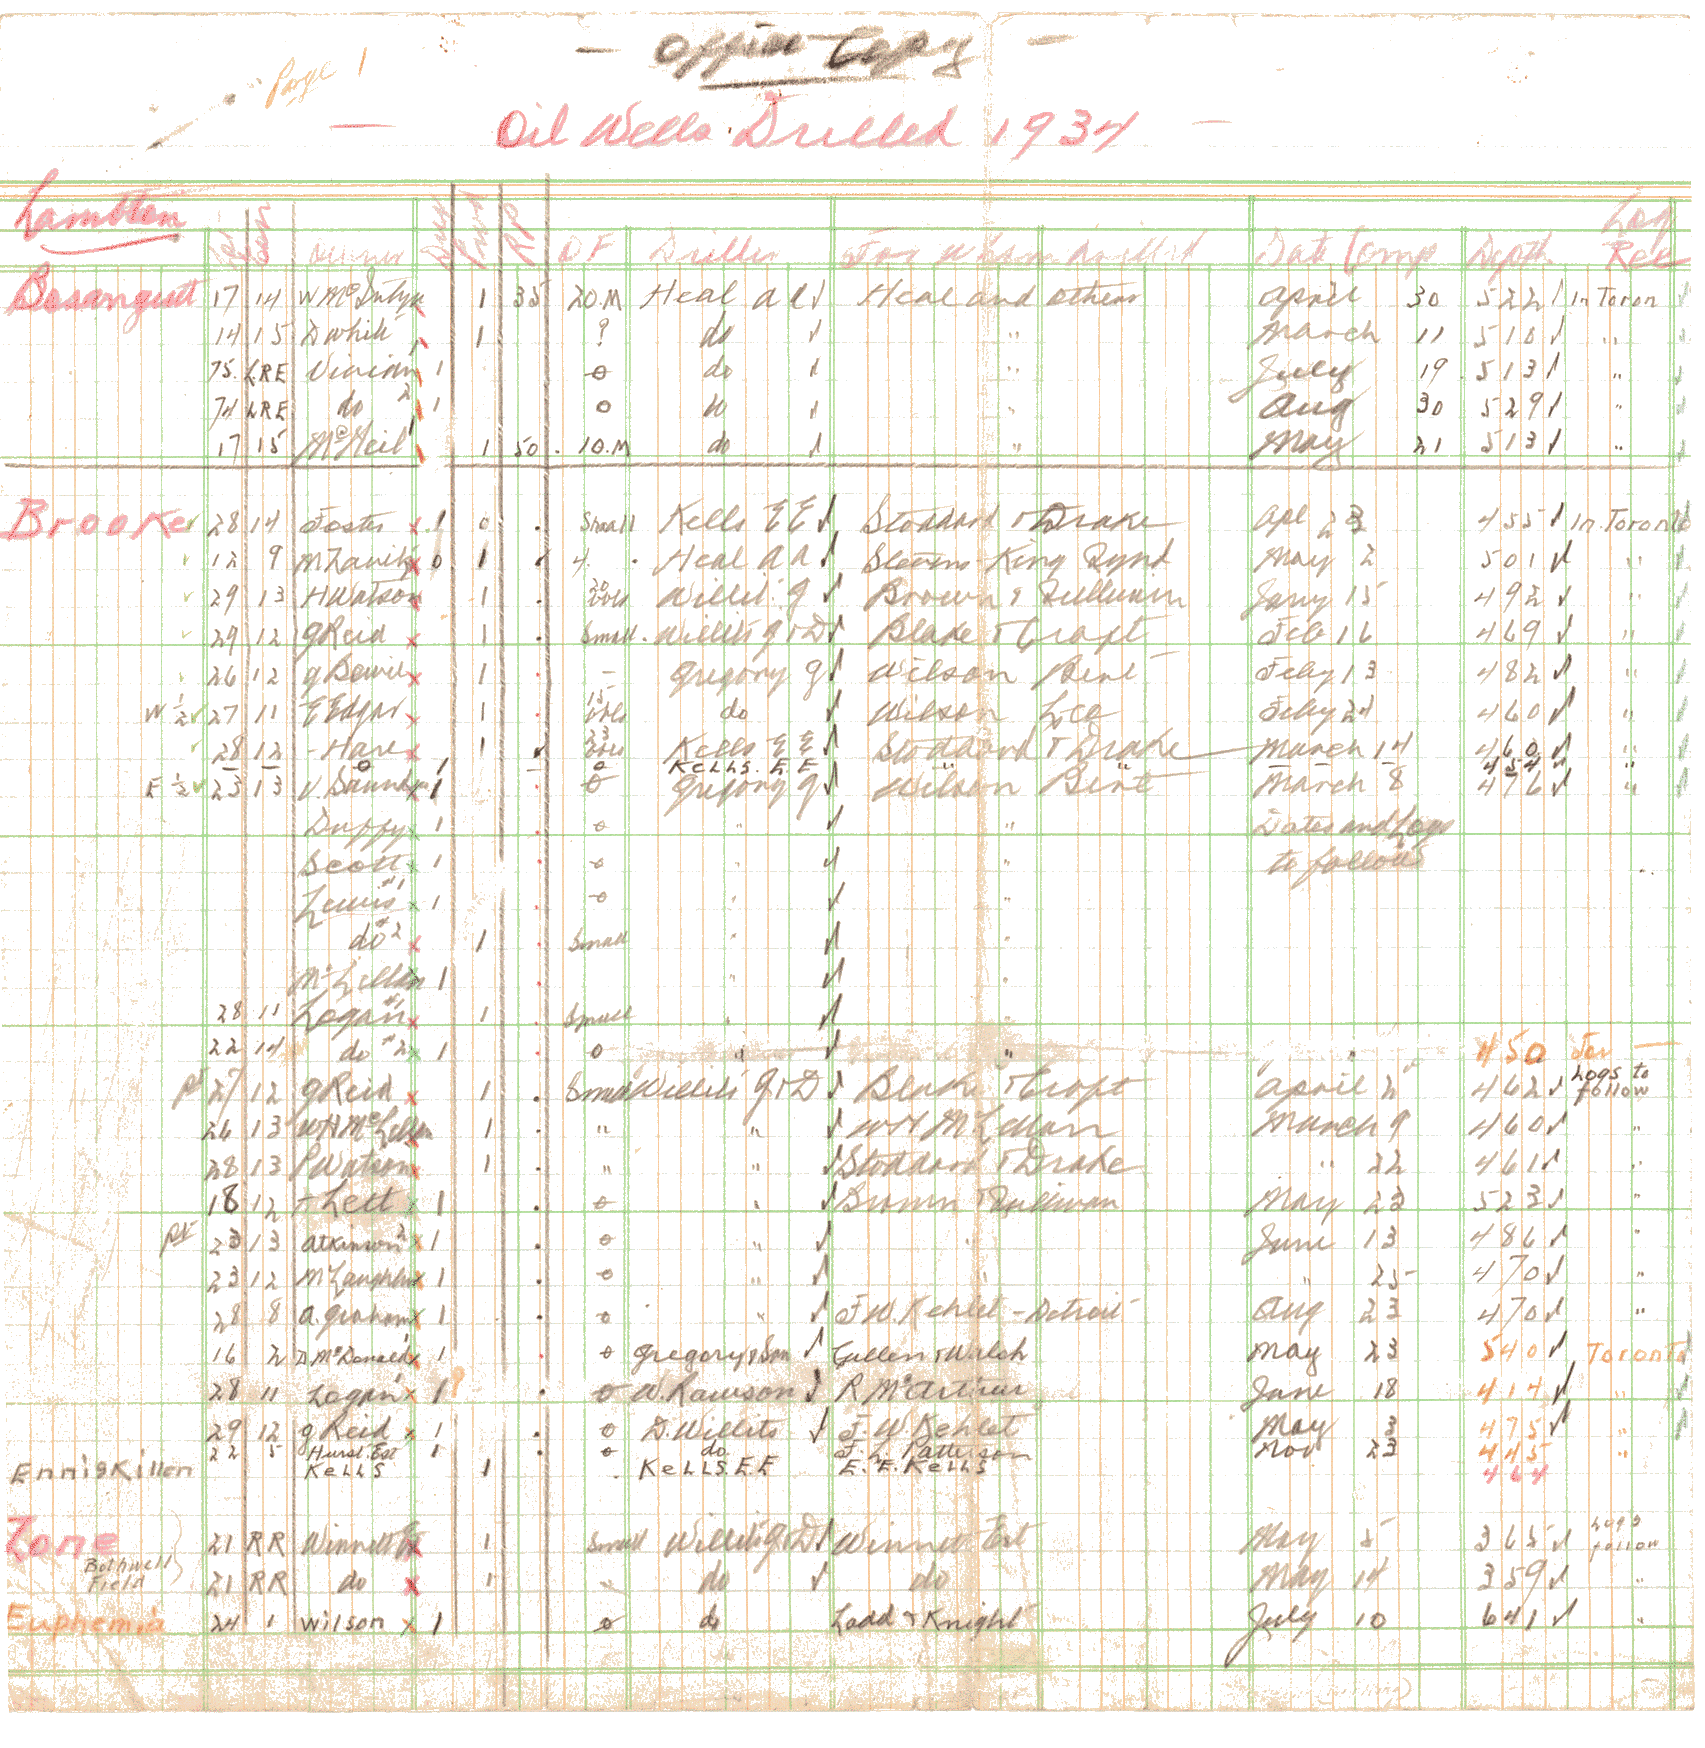 Office Copy
Page 1
Oil Wells Drilled 1934
Lambton Log
Lot Con Owner Dry Prod R.P. O.F Driller For Whom Drilled Date Comp Depth Rec
Bosanquet 17 14 W McIntyre 1 35 20.M Heal a a Heal and others April 30 522 In Toron
14 15 D White 1 ? do " March 11 510 "
75 L.R.E Vivian 1 0 do " July 19 513 "
74 L.R.E do 2 1 0 do " Aug 30 529 "
17 15 McNeil 1 1 50 10.M do " May 21 513 "
Brooke 28 14 Foster x 1 0 Small Kells E E Stoddard + Drake Apl 23 455 In Toronto
12 9 x 0 1 4 Heal a a Stevens King Rynd May 2 501 "
29 13 H Watson 1 20 bbls Willits G Brown + Sullivan Jany 15 492 "
29 12 G Reid x 1 Small Willits G + D Blake + Croft Feb 16 469 "
26 12 G x 1 - Gregory G Wilson Bent Feby 13 482 "
W 1/2 27 11 E Edgar x 1 15 bbls do Wilson L Co Feby 24 460 "
28 12 Hare x 1 23 bbls Kells E E Stoddard + Drake March 14 460 "
— — 0 1 — 0 KELLS. E. E " " — 454 "
E 1/2 23 13 V. Saunders x 1 0 Gregory G Wilson Bent March 8 476 "
Duffy x 1 0 " " Dates and Logs
Scott x 1 0 " " to follow
Lewis #1 x 1 0 " "
do #2 x 1 Small " "
McLellan 1 " "
28 11 Logan #1 x 1 Small " "
22 14 do #2 x 1 0 " " " " 450 Tor —
pt 27 12 G Reid x 1 Small Willits G + D Blake + Croft April 2 462 Logs to follow
26 13 W H McLellan 1 " " W H McLellan March 9 460 "
28 13 P Watson x 1 " " Stoddard + Drake " 22 461 "
18 12 Lett x 1 0 " Brown + Sullivan May 23 523 "
pt 23 13 Atkinson 2 x 1 0 " " June 13 486 "
23 12 McLaughlin x 1 0 " " " 25 470 "
28 8 A. Graham x 1 0 " J W. Kehlet - Detroit Aug 23 470 "
16 2 D McDonald x 1 0 Gregory + Son Gillen + Walsh May 23 540 Toronto
28 11 Logan x 1 ? 0 W. Rawson R McArthur June 18 414 "
29 12 G Reid x 1 0 D. Willits J. W Kehlet May 3 475 "
22 5 Hurst. Est 1 0 do J. L. Patterson Nov 23 445 "
Enniskillen KELLS 1 KELLS. E. E E. E. KELLS 464
Zone 21 RR Winnett Est x 1 Small Willits G + D Winnett Est May 5 365 Logs follow
Bothwell Field 21 RR do x 1 " do do May 14 359 "
Euphemia 24 1 Wilson x 1 0 do Ladd + Knight July 10 641 "